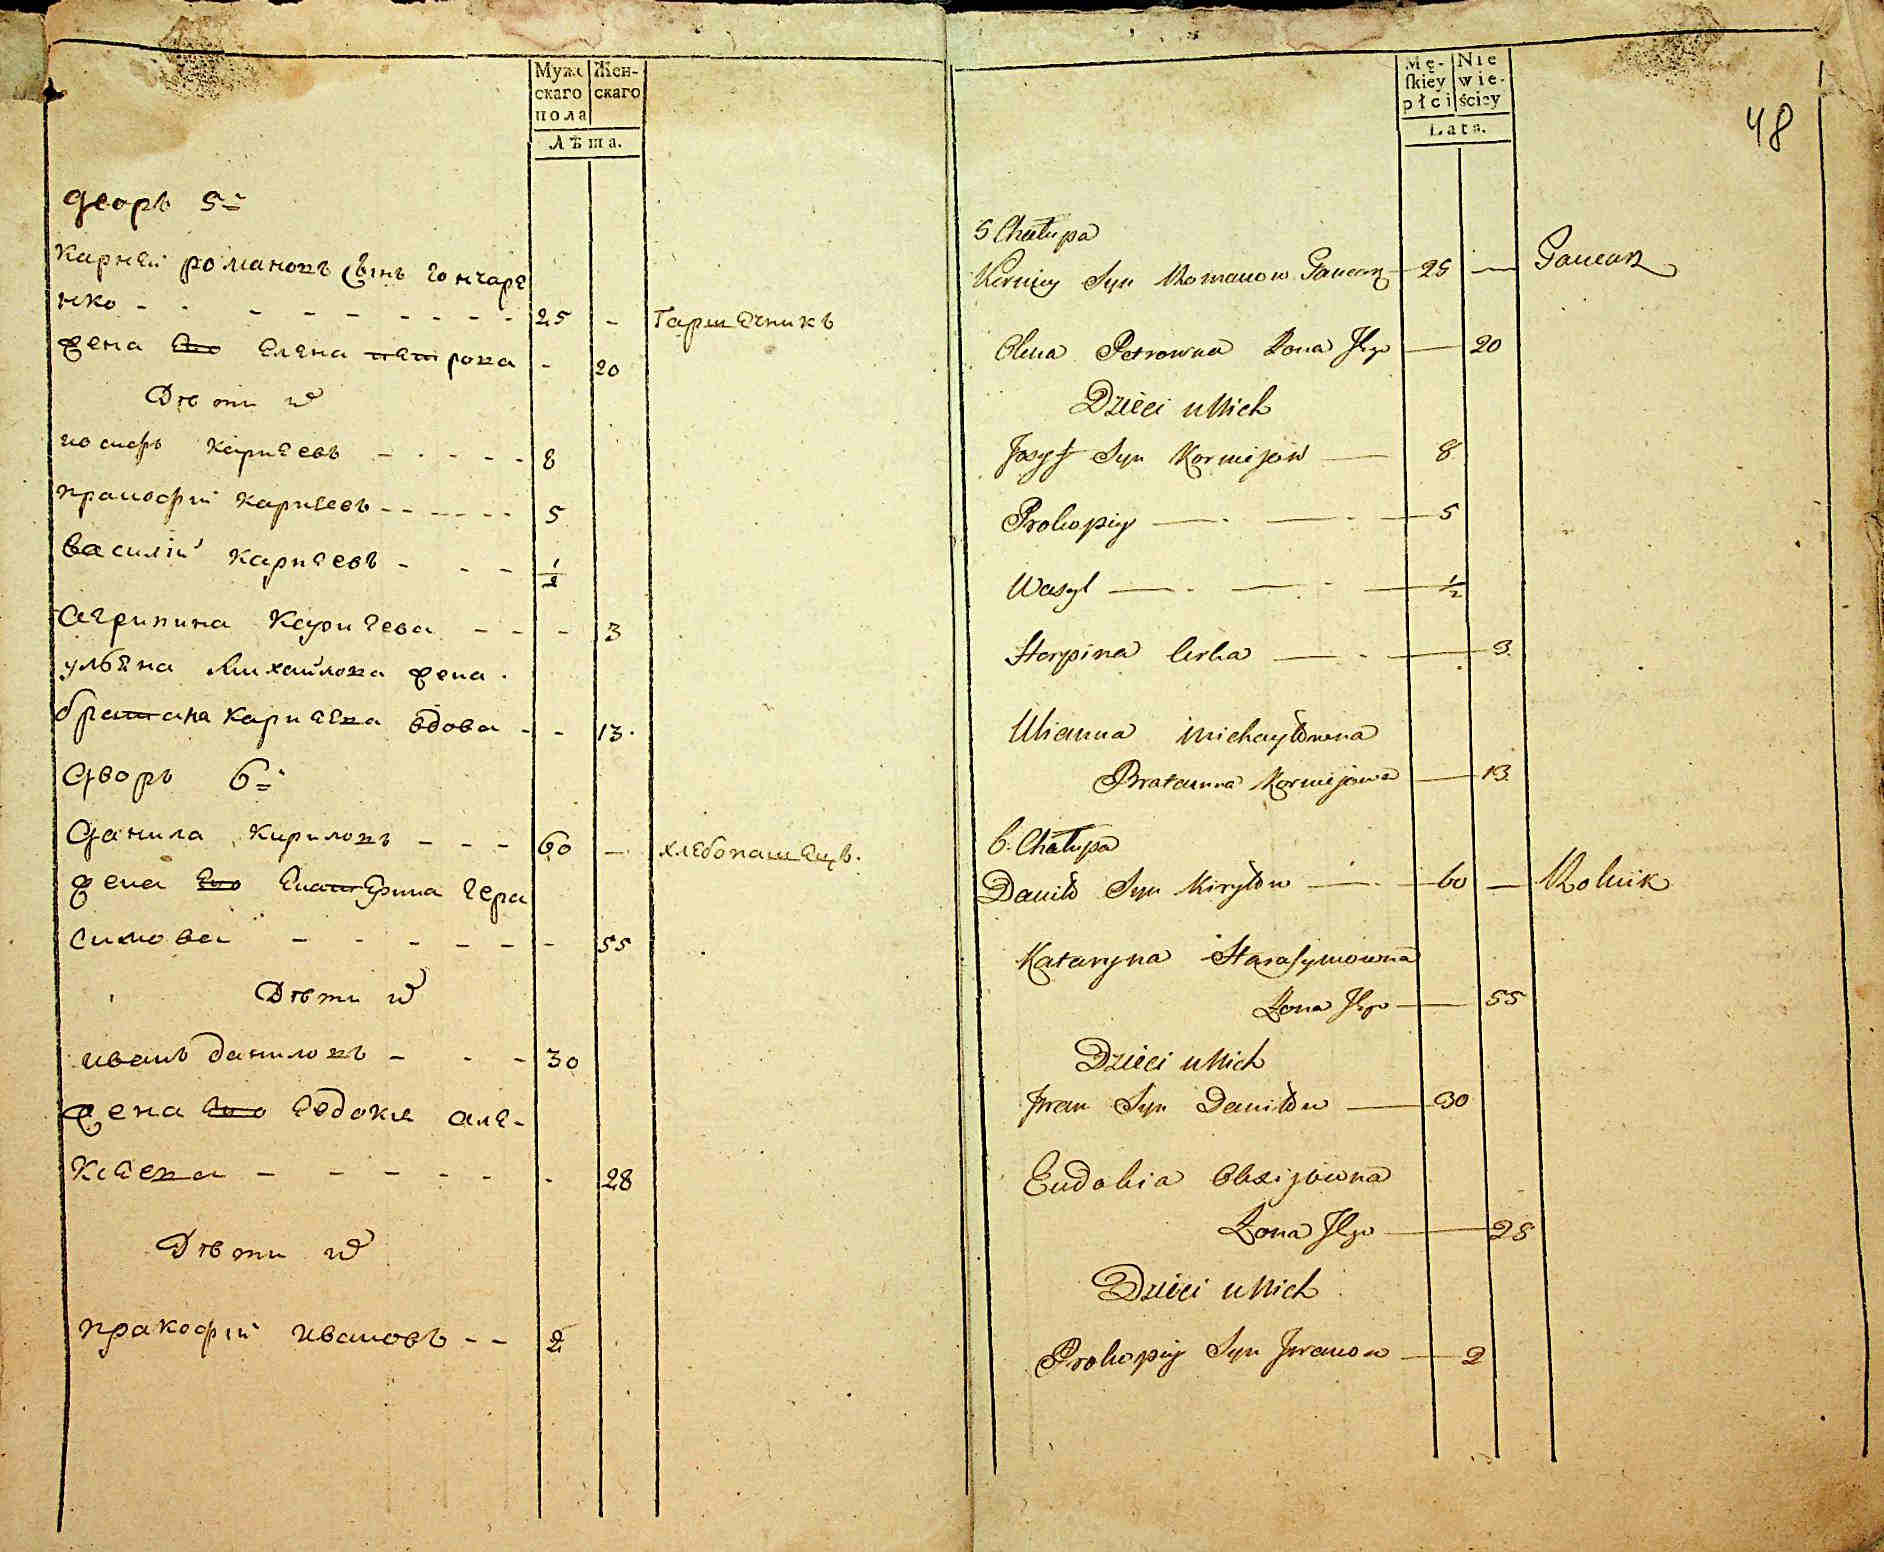 Муже
скаго
пола
Жен-
скаго
Лѣта.
дворъ 5й
Карней романовъ сынъ гончаре
нко - - - - - - - - 25 - Гаршечникъ
жена его Елена петрова - 20
Дѣти их
иосифъ карнеевъ - - - - - 8
пракофий карнеевъ - - - - - - 5
василій карнеевъ - - - 1/2
агрипина карнеева - - - 3
ульяна михайлова жена
братана карнеева вдова - - 13.
дворъ 6й
данила кириловъ - - - 60 - хлебопашецъ.
жена его Екатерина гера
симова - - - - - - 55
Дѣти их
иванъ даниловъ - - - 30
жена его Евдокия але-
ксеева - - - - - - 28
Дѣти их
пракофій ивановъ - - 2
Mę-
skiey
płci
Nie
wie-
ściey
Lata.
48
5 Chałupa
Kerniey Syn Romanow Gancarz 25 — Gancarz
Olena Petrowna Żona Jego — 20
Dzieci u Nich
Josyf Syn Kornijow — 8
Prokopiy — . — . — 5
Wasyl — . — . — 1/2
Horpina Curka — . — 3.
Ulianna Michayłowna
Bratanna Kornijowa — 13.
6. Chałupa
Daniło Syn Kiryłow — . — 60 — Rolnik
Kataryna Harasymowna
Żona Jego — 55
Dzieci u Nich
Jwan Syn Daniłow — 30
Eudokia Olexijowna
Żona Jego — 25
Dzieci u Nich
Prokopiy Syn Jwanow — 2